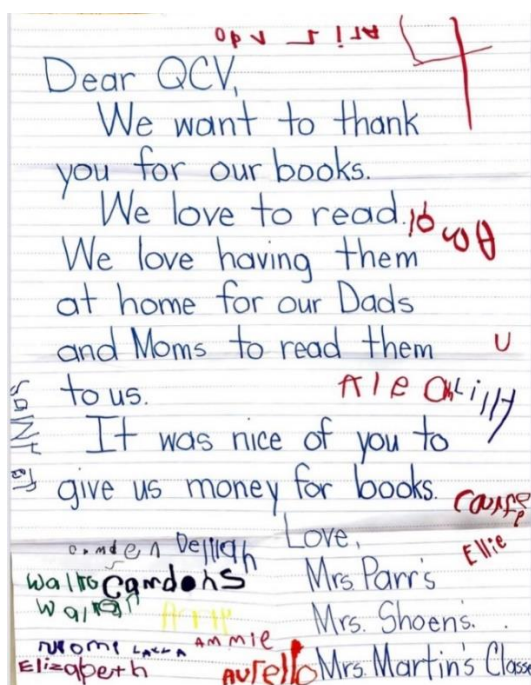 Dear QCV,
We want to thank
you for our books.
We love to read.
We love having them
at home for our Dads
and Moms to read them
to us.
It was nice of you to
give us money for books.
Love,
Mrs. Parr's
Mrs. Shoen's.
Mrs. Martin's Classe
Lilly
Ellie
Camden Delilah
Walko Camdons
Walker
Ammie
Naomi
Elizabeth
Aurello